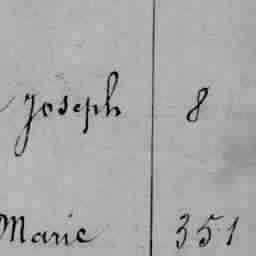 Joseph 8
Marie 351